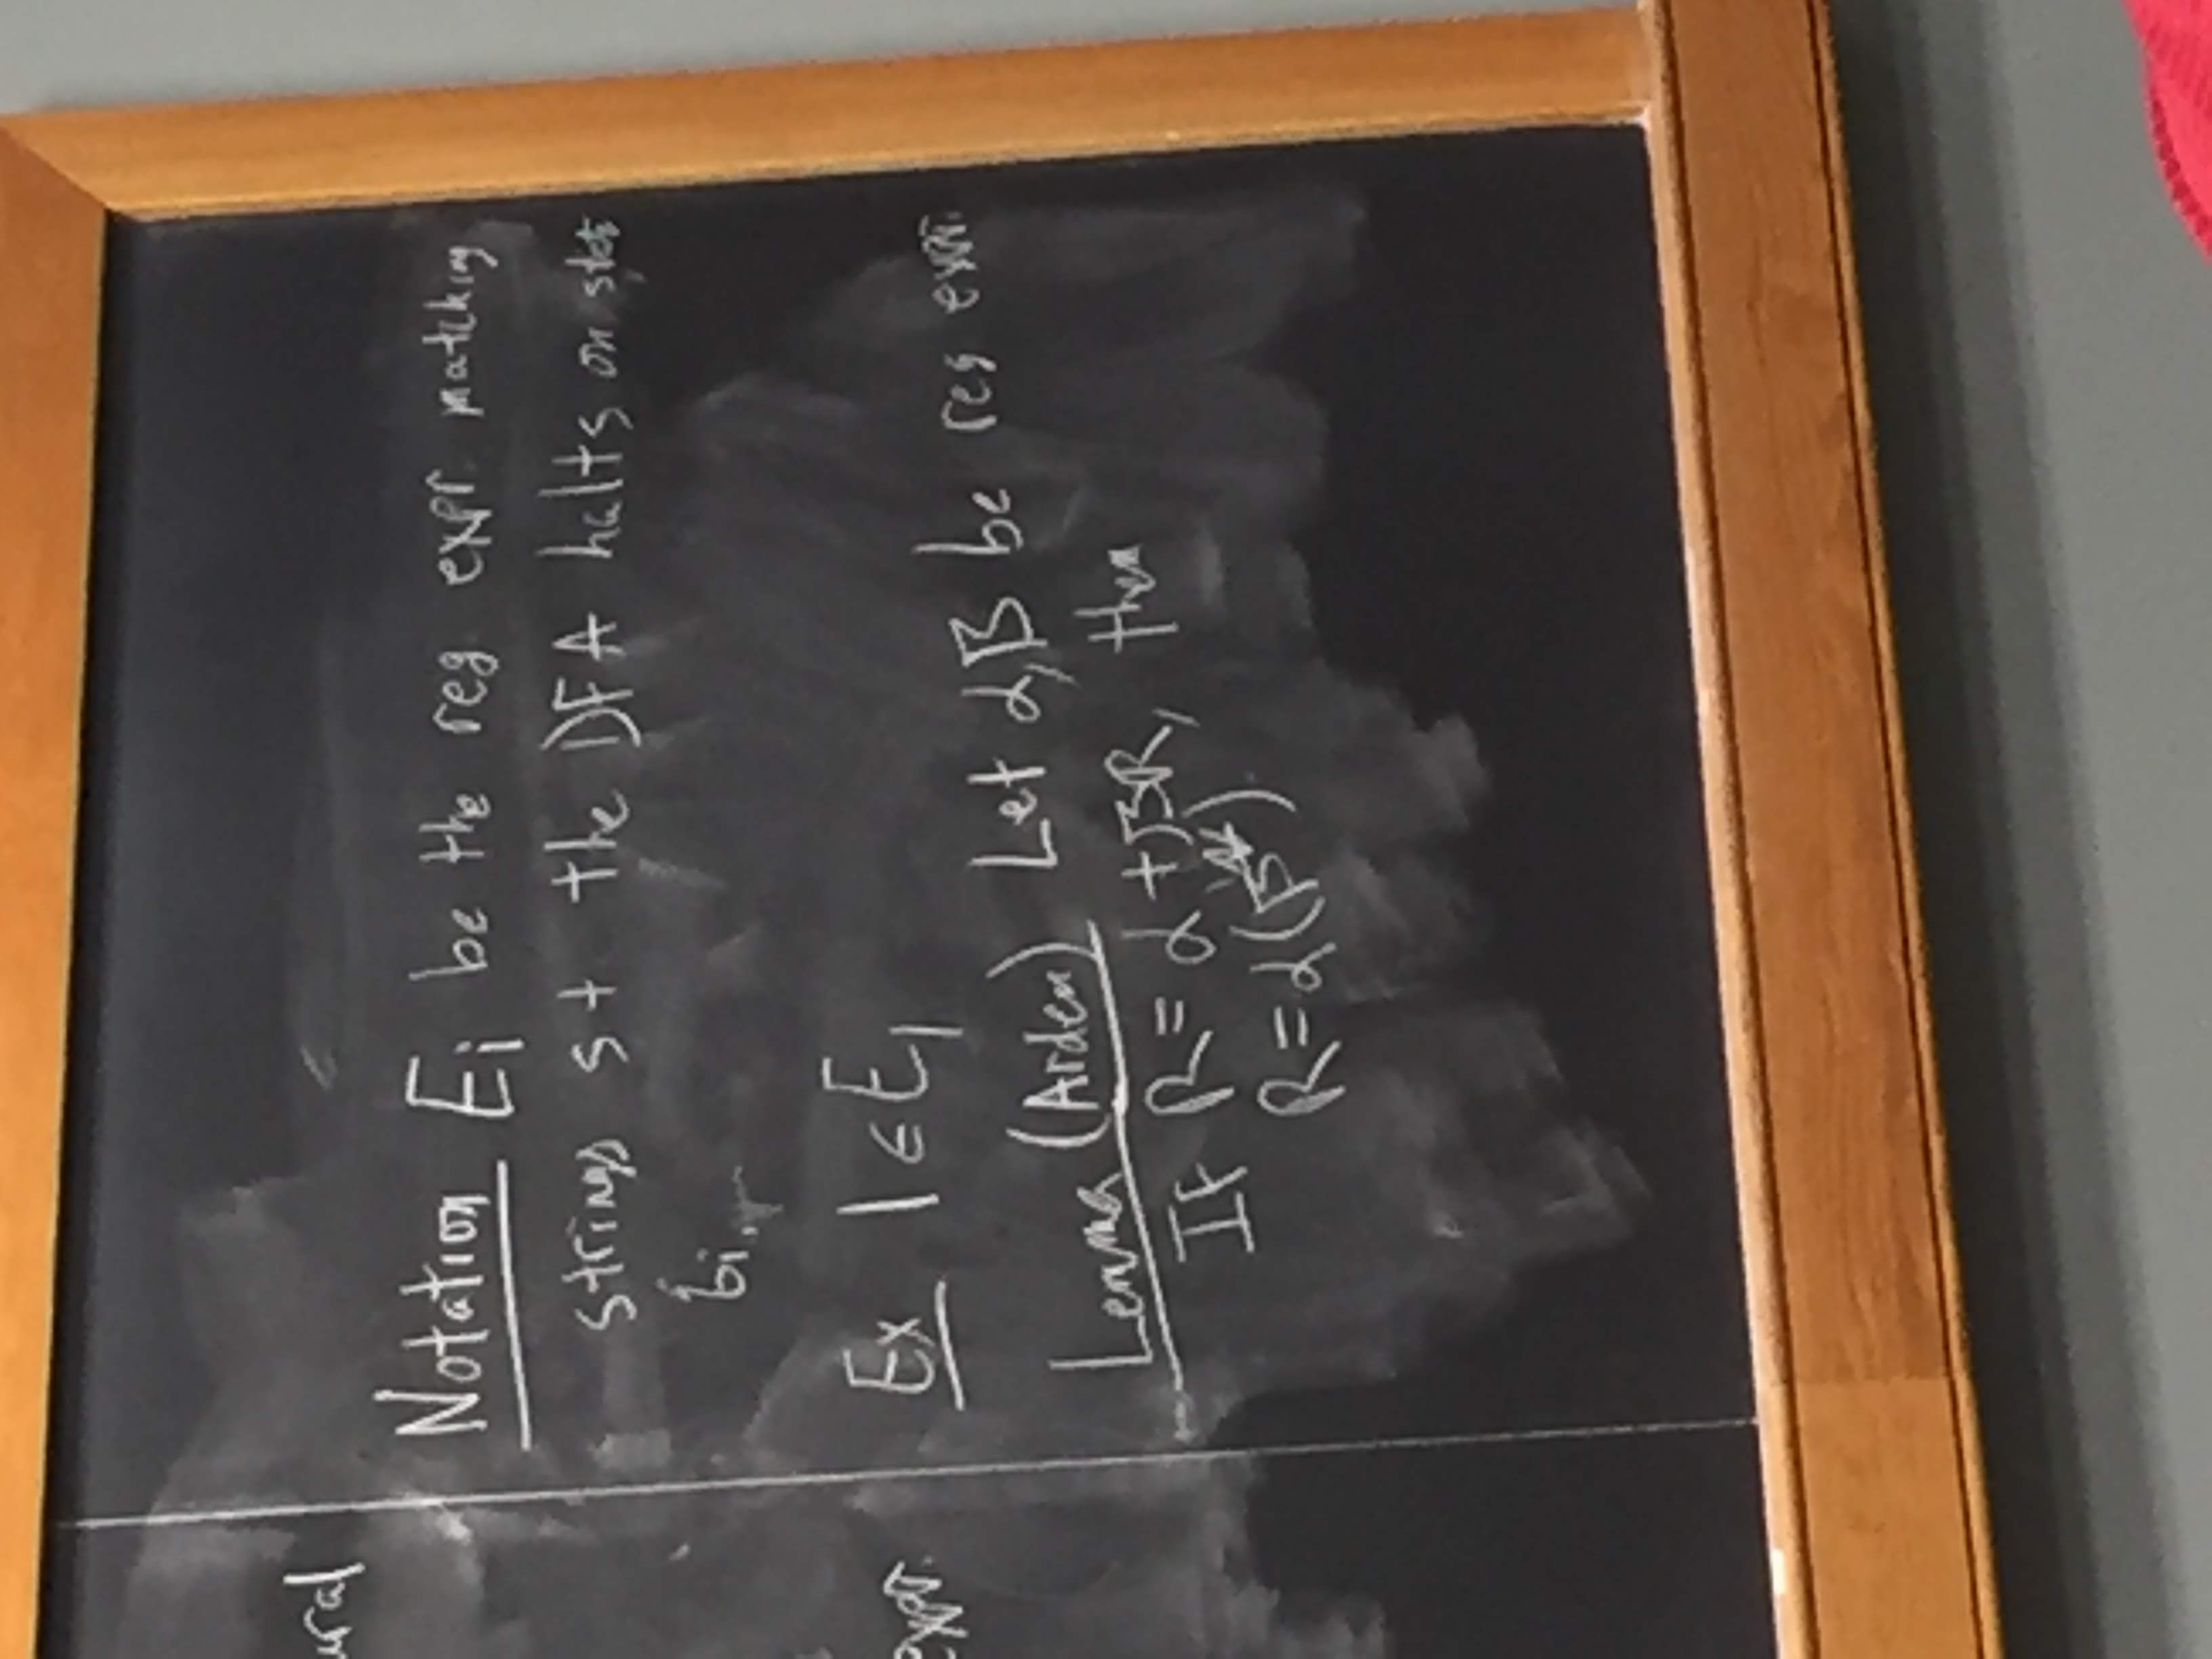 ural
expr.
Notation Ei be the reg expr. matching
strings st the DFA halts on state
Ex 1 ∈ E1
Lemma (Arden) Let α, β be reg expr.
If R = α + βR, then
R = α(β*)